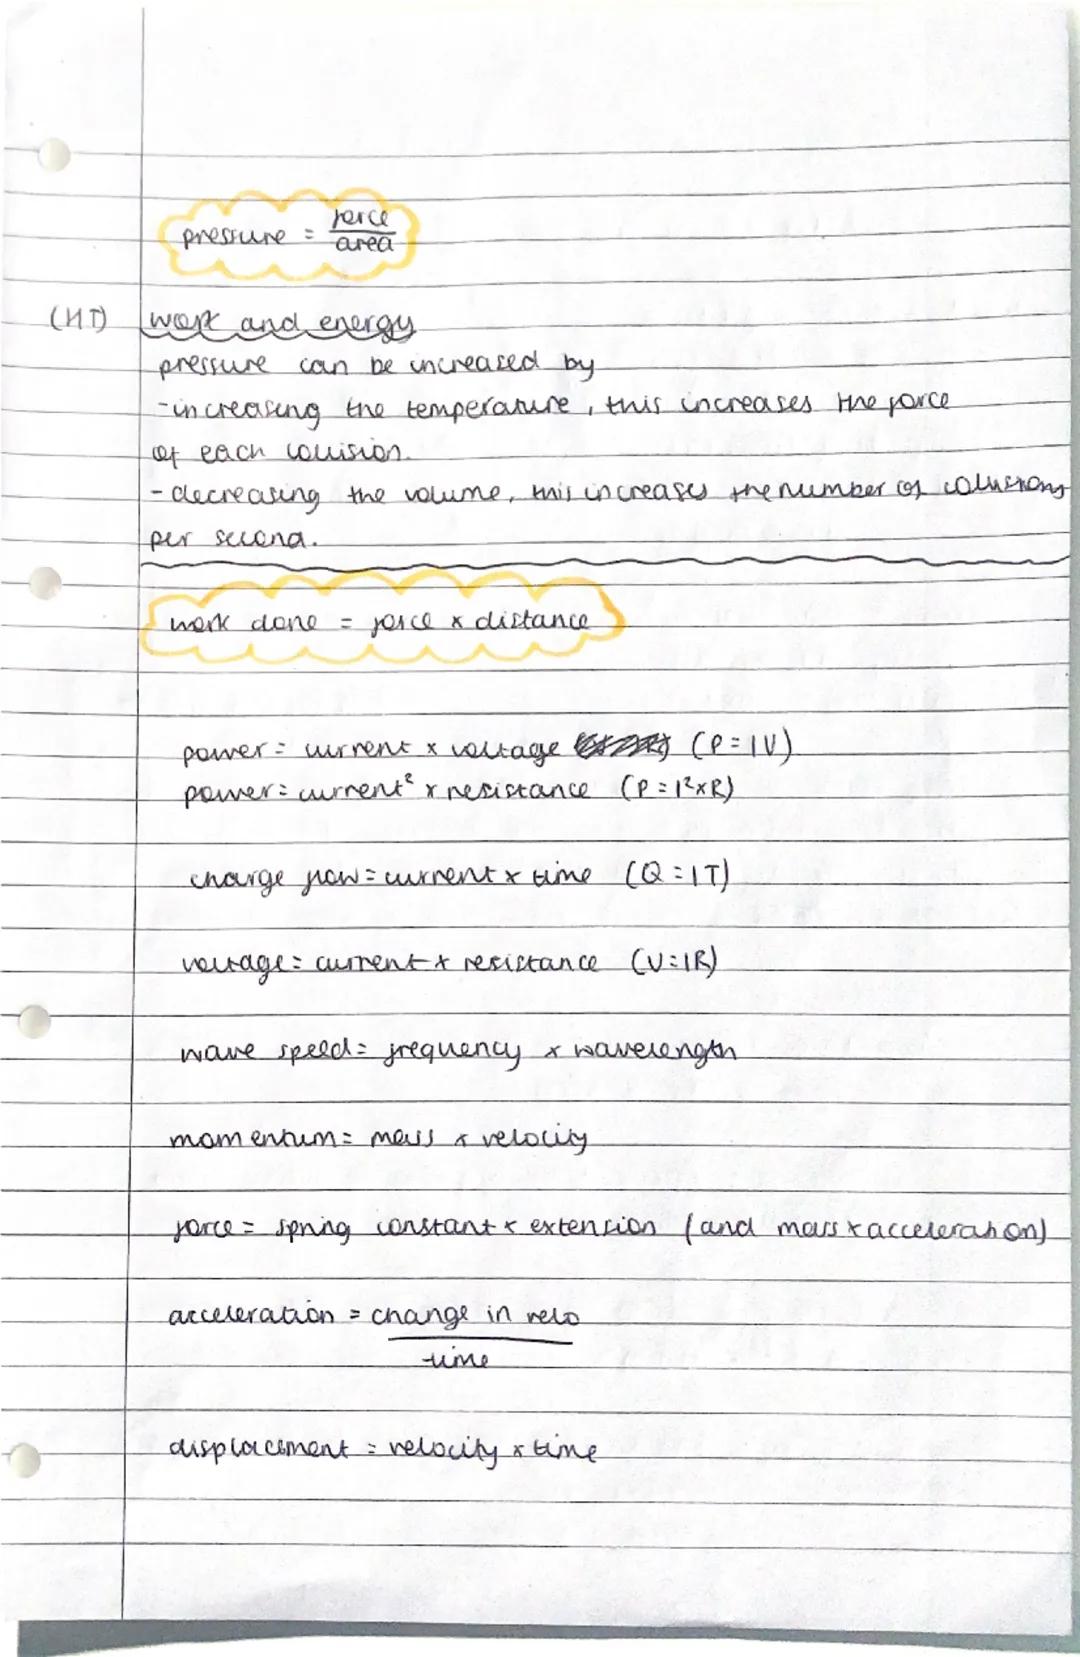 pressure = force
area
(HT) work and energy
pressure can be increased by
- increasing the temperature, this increases the force
of each collision.
- decreasing the volume, this increases the number of collisions
per second.
work done = force x distance
power = current x voltage (P = IV)
power = current² x resistance (P = I²xR)
charge flow = current x time (Q = IT)
voltage = current x resistance (V = IR)
wave speed = frequency x wavelength
momentum = mass x velocity
force = spring constant x extension (and mass x acceleration)
acceleration = change in velo
time
displacement = velocity x time